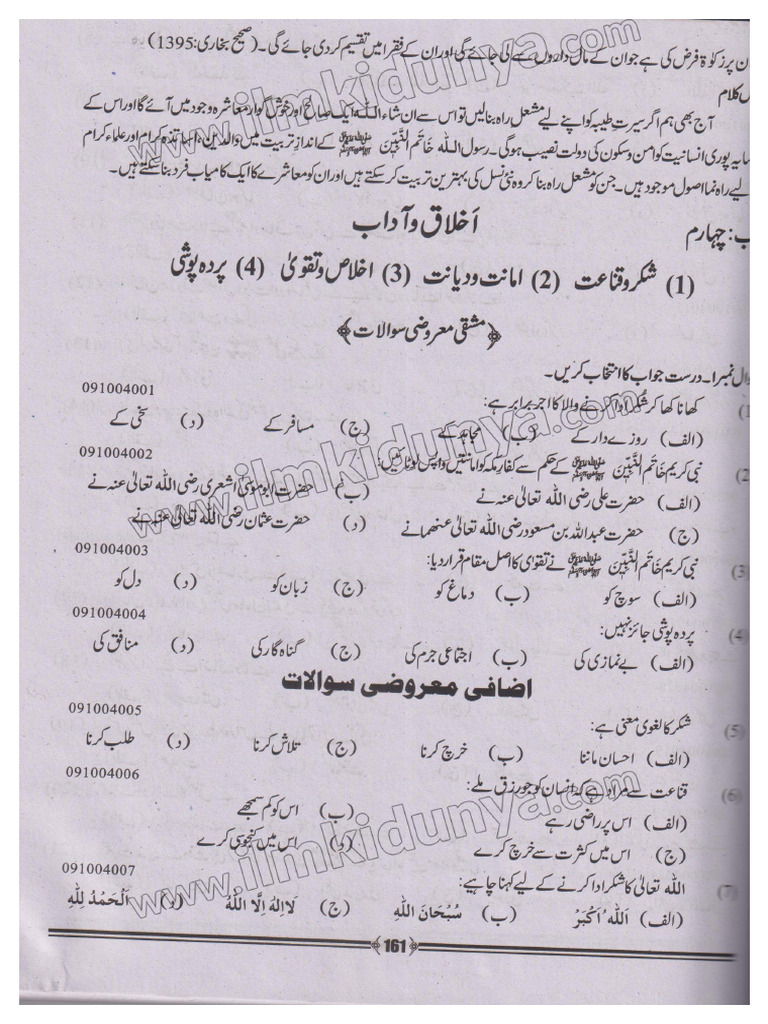 ن پر زکوٰۃ فرض کی ہے جو ان کے مال داروں سے لی جائے گی اور ان کے فقرا میں تقسیم کر دی جائے گی۔ (صحیح بخاری:1395)
کلام
آج بھی ہم اگر سیرتِ طیبہ کو اپنے لیے مشعل راہ بنا لیں تو اس سے ان شاء اللہ ایک صالح اور خوش گوار معاشرہ وجود میں آئے گا اور اس کے
سایہ پوری انسانیت کو امن و سکون کی دولت نصیب ہوگی۔ رسول اللہ خَاتَم النَّبِیّٖنَ ﷺ کے اندازِ تربیت میں والدین، اساتذہ کرام اور علماء کرام
لیے راہ نما اصول موجود ہیں۔ جن کو مشعل راہ بنا کر وہ نئی نسل کی بہترین تربیت کر سکتے ہیں اور ان کو معاشرے کا ایک کامیاب فرد بنا سکتے ہیں۔
ب: چہارم اَخلاق و آداب
(1) شکر و قناعت (2) امانت و دیانت (3) اخلاص و تقویٰ (4) پردہ پوشی
﴿مشقی معروضی سوالات﴾
وال نمبر ۱۔ درست جواب کا انتخاب کریں۔
(1) کھانا کھا کر شُکر ادا کرنے والا کا اجر برابر ہے: 091004001
(الف) روزے دار کے (ب) مجاہد کے (ج) مسافر کے (د) سخی کے
(2) نبی کریم خَاتَم النَّبِیّٖنَ ﷺ کے حکم سے کفارِ مکہ کو امانتیں واپس لوٹائیں: 091004002
(الف) حضرت علی رضی اللہ تعالیٰ عنہ نے (ب) حضرت ابو موسیٰ اشعری رضی اللہ تعالیٰ عنہ نے
(ج) حضرت عبداللہ بن مسعود رضی اللہ تعالیٰ عنھما نے (د) حضرت عثمان رضی اللہ تعالیٰ عنہ نے
(3) نبی کریم خَاتَم النَّبِیّٖنَ ﷺ نے تقویٰ کا اصل مقام قرار دیا: 091004003
(الف) سوچ کو (ب) دماغ کو (ج) زبان کو (د) دل کو
(4) پردہ پوشی جائز نہیں: 091004004
(الف) بے نمازی کی (ب) اجتماعی جرم کی (ج) گناہ گار کی (د) منافق کی
اضافی معروضی سوالات
(5) شکر کا لغوی معنی ہے: 091004005
(الف) احسان ماننا (ب) خرچ کرنا (ج) تلاش کرنا (د) طلب کرنا
(6) قناعت سے مراد ہے کہ انسان کو جو رزق ملے: 091004006
(الف) اس پر راضی رہے (ب) اس کو کم سمجھے
(ج) اس میں کثرت سے خرچ کرے (د) اس میں کنجوسی کرے
(7) اللہ تعالیٰ کا شکر ادا کرنے کے لیے کہنا چاہیے: 091004007
(الف) اَللّٰہُ اَکْبَرُ (ب) سُبْحَانَ اللّٰہِ (ج) لَا اِلٰہَ اِلَّا اللّٰہُ (د) اَلْحَمْدُ لِلّٰہِ
161
www.ilmkidunya.com
www.ilmkidunya.com
www.ilmkidunya.com